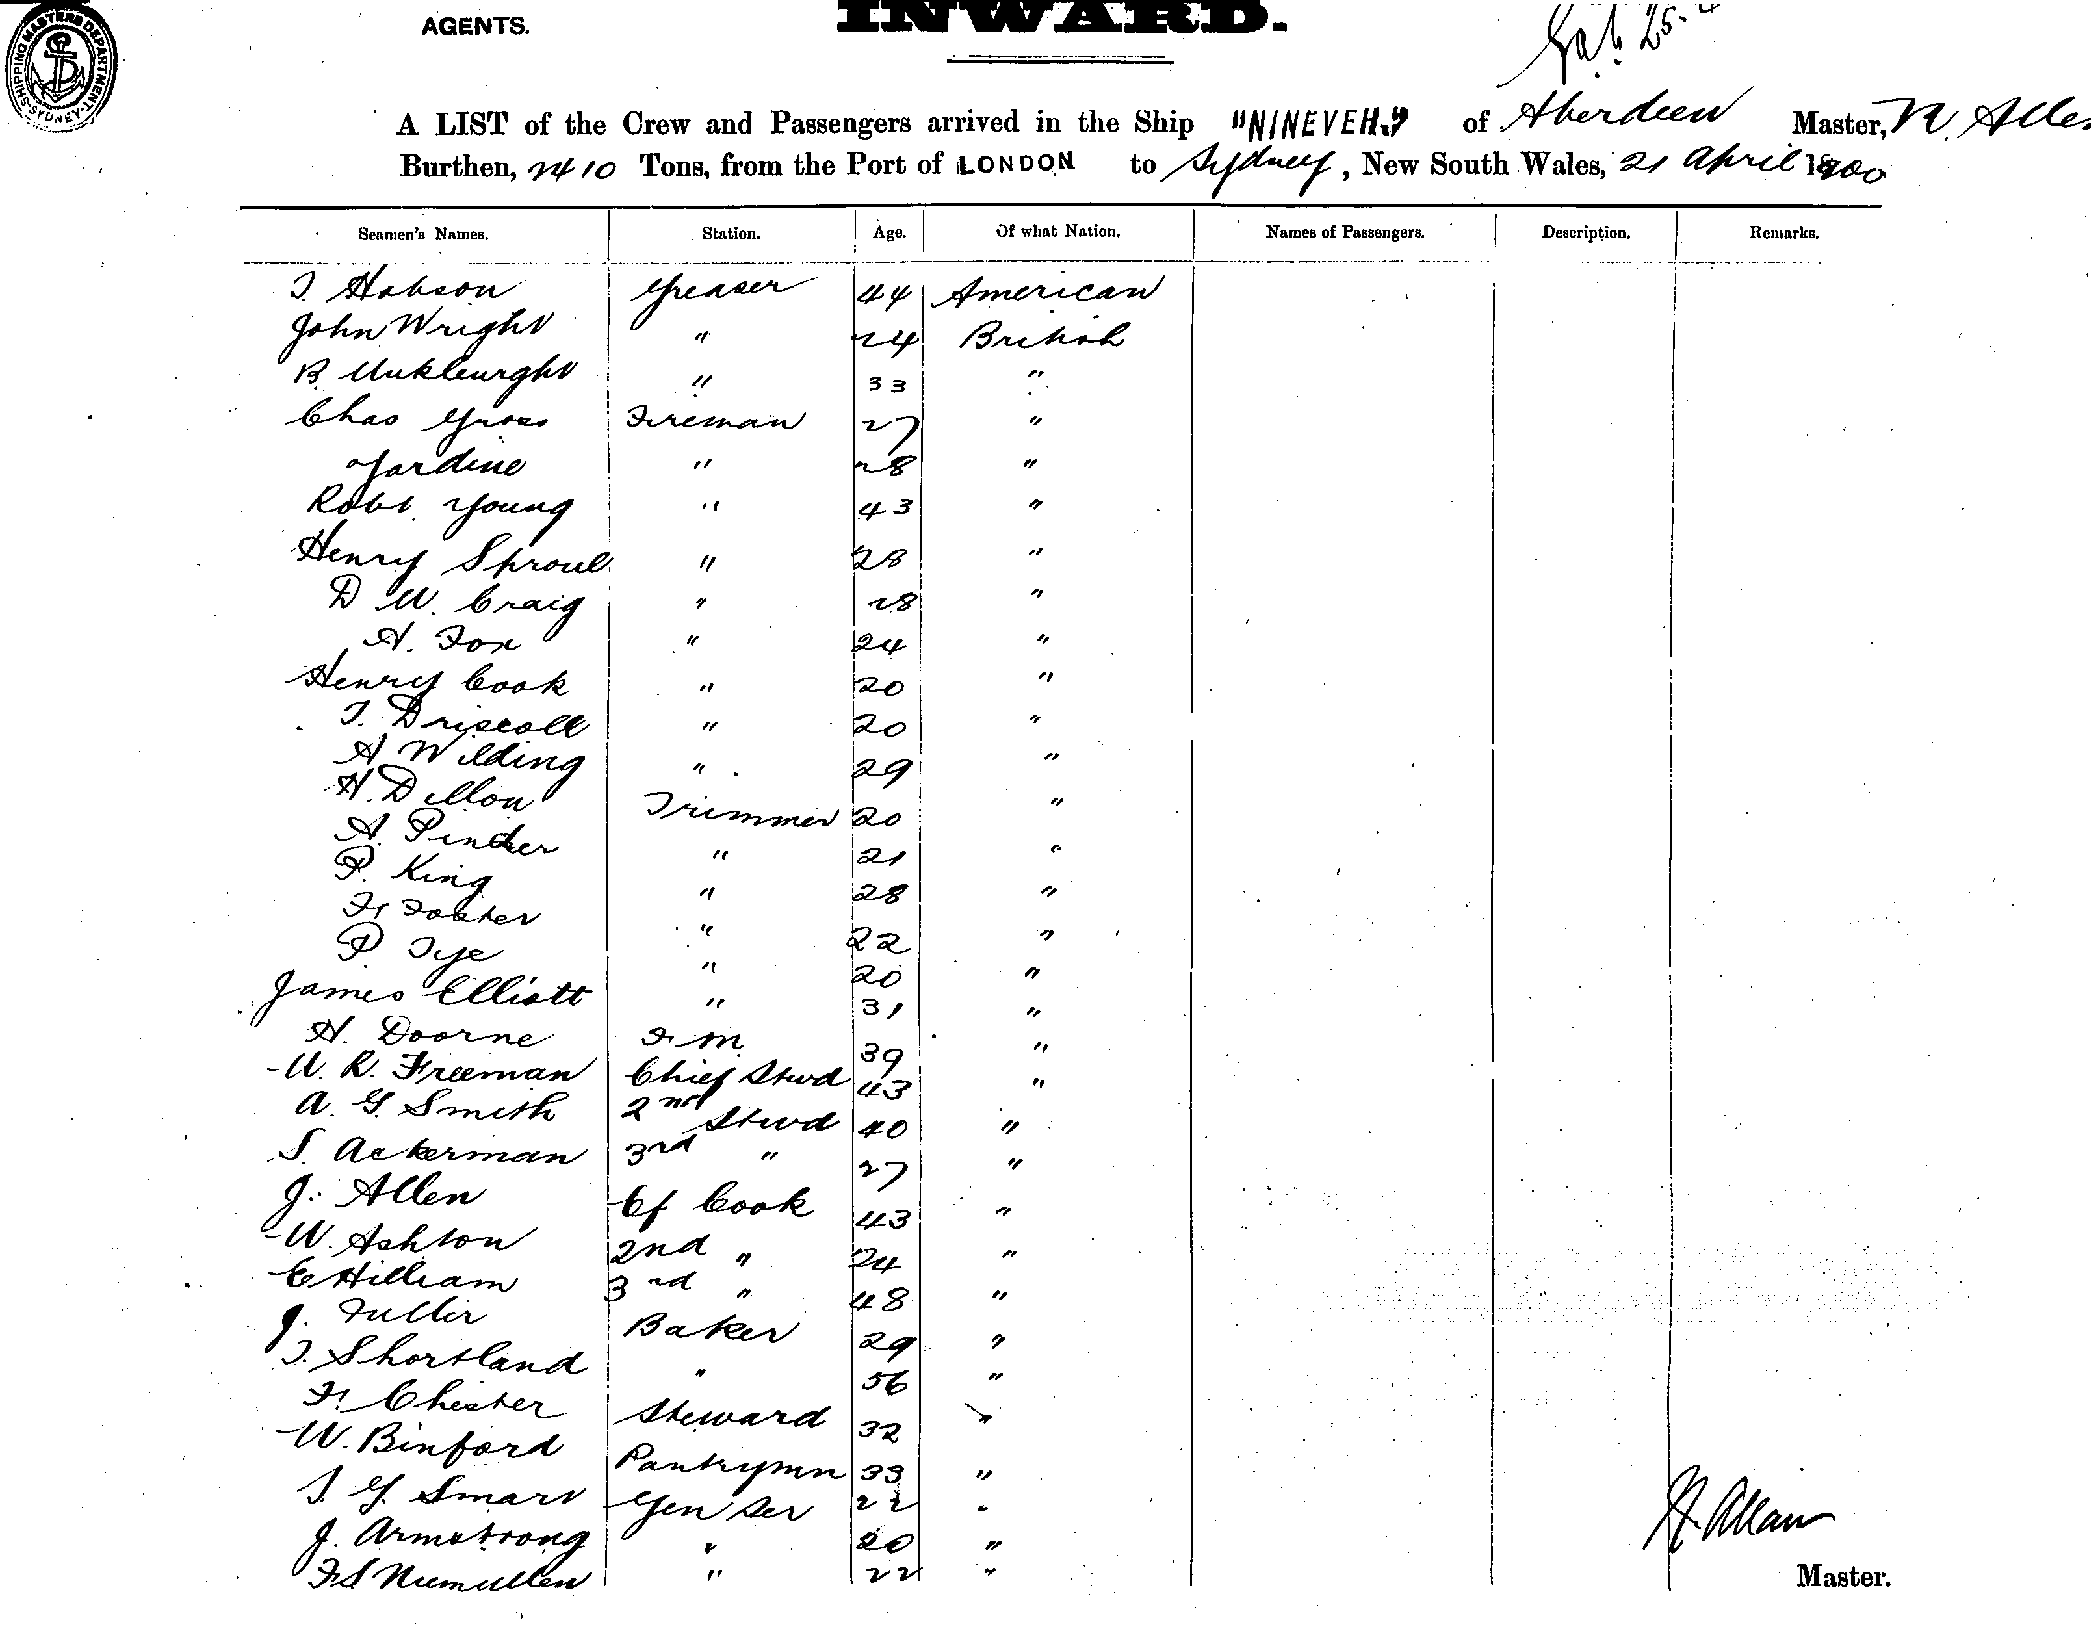 AGENTS.
INWARD.
SHIPPING MASTERS DEPARTMENT SYDNEY
A LIST of the Crew and Passengers arrived in the Ship "NINEVEH." of Aberdeen Master, N. Alle
Burthen, 2410 Tons, from the Port of LONDON to Sydney, New South Wales, 21 April 1900
Seamen's Names. Station. Age. Of what Nation. Names of Passengers. Description. Remarks.
T. Hobson Greaser 44 American
John Wright " 24 British
B. " 33 "
Chas Gross Fireman 27 "
Jardine " 28 "
Robt. Young " 43 "
Henry Sproul " 28 "
D W. Craig " 28 "
A. Fox " 24 "
Henry Cook " 20 "
T. Driscoll " 20 "
A Wilding " 29 "
H. Dillon Trimmer 20 "
A. Pincher " 21 "
P. King " 28 "
F. Foster " 22 "
P Tye " 20 "
James Elliott " 31 "
H. Doorne F. M. 39 "
W. R. Freeman Chief Stwd 43 "
A. G. Smith 2nd Stwd 40 "
S. Ackerman 3rd " 27 "
J. Allen Cf Cook 43 "
W. Ashton 2nd " 24 "
C Hilliam 3rd " 48 "
J. Fuller Baker 29 "
T. Shortland " 56 "
F. Chester Steward 32 "
W. Binford Pantrymn 33 "
T. G. Smart Gen Ser 22 "
J. Armstrong " 20 "
F S " 22 "
N. Allan
Master.